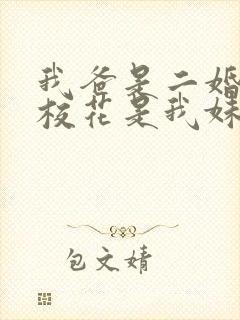 我爸是二婚
校花是我妹
包文婧